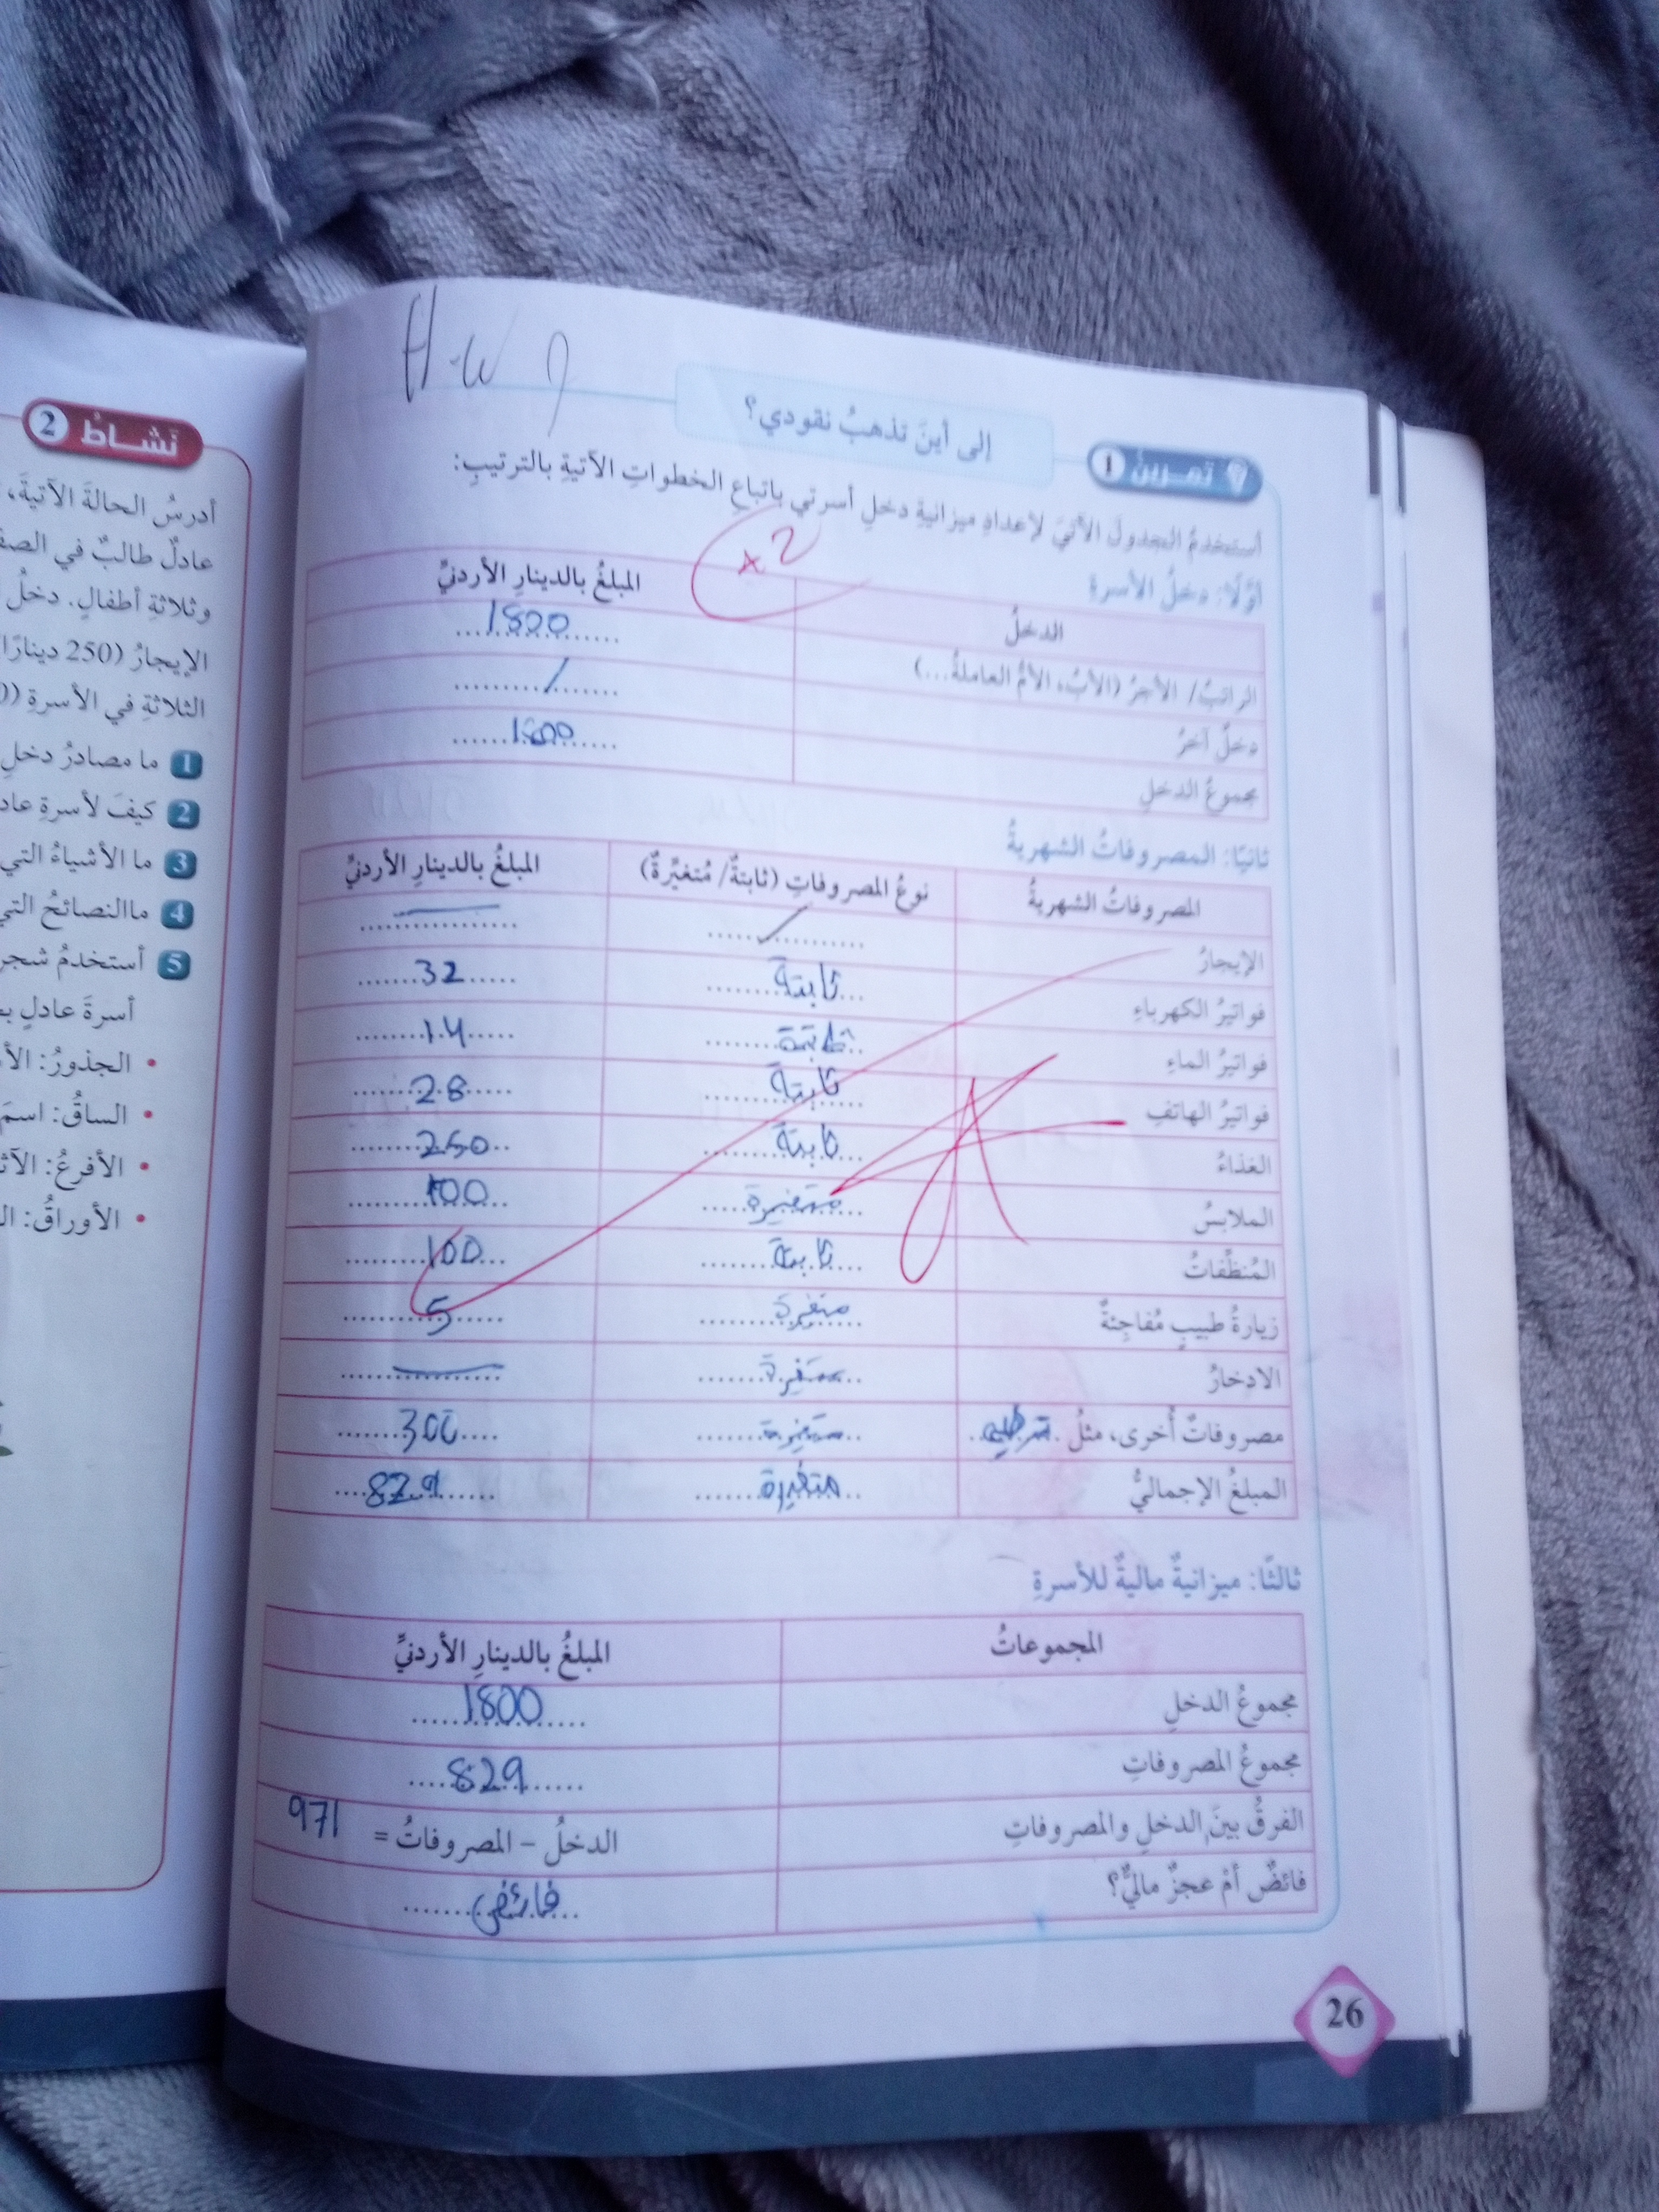 H.W
تمرين 1
إلى أينَ تذهبُ نقودي؟
أستخدمُ الجدولَ الآتيَ لإعدادِ ميزانيةِ دخلِ أسرتي باتباعِ الخطواتِ الآتيةِ بالترتيبِ:
أوّلًا: دخلُ الأسرةِ
الدخلُ المبلغُ بالدينارِ الأردنيِّ
الراتبُ/ الأجرُ (الأبُ، الأمُّ العاملةُ...) 1800
دخلٌ آخرُ /
مجموعُ الدخلِ 1800
ثانيًا: المصروفاتُ الشهريةُ
المصروفاتُ الشهريةُ نوعُ المصروفاتِ (ثابتةٌ/ مُتغيِّرةٌ) المبلغُ بالدينارِ الأردنيِّ
الإيجارُ
فواتيرُ الكهرباءِ ثابتة 32
فواتيرُ الماءِ ثابتة 14
فواتيرُ الهاتفِ ثابتة 28
الغذاءُ ثابتة 250
الملابسُ متغيرة 100
المُنظِّفاتُ ثابتة 100
زيارةُ طبيبٍ مُفاجِئةٌ متغيرة 5
الادخارُ متغيرة
مصروفاتٌ أُخرى، مثلُ ترفيه متغيرة 300
المبلغُ الإجماليُّ متغيرة 829
ثالثًا: ميزانيةٌ ماليةٌ للأسرةِ
المجموعاتُ المبلغُ بالدينارِ الأردنيِّ
مجموعُ الدخلِ 1800
مجموعُ المصروفاتِ 829
الفرقُ بينَ الدخلِ والمصروفاتِ الدخلُ – المصروفاتُ = 971
فائضٌ أمْ عجزٌ ماليٌّ؟ فائض
26
نشاطٌ 2
أدرسُ الحالةَ الآتيةَ،
عادلٌ طالبٌ في
وثلاثةِ أطفالٍ. دخلُ
الإيجارُ (250 دينارًا
الثلاثةِ في الأسرةِ
1 ما مصادرُ دخلِ
2 كيفَ لأسرةِ
3 ما الأشياءُ التي
4 ماالنصائحُ التي
5 أستخدمُ
أسرةَ عادلٍ
• الجذورُ:
• الساقُ:
• الأفرعُ:
• الأوراقُ: